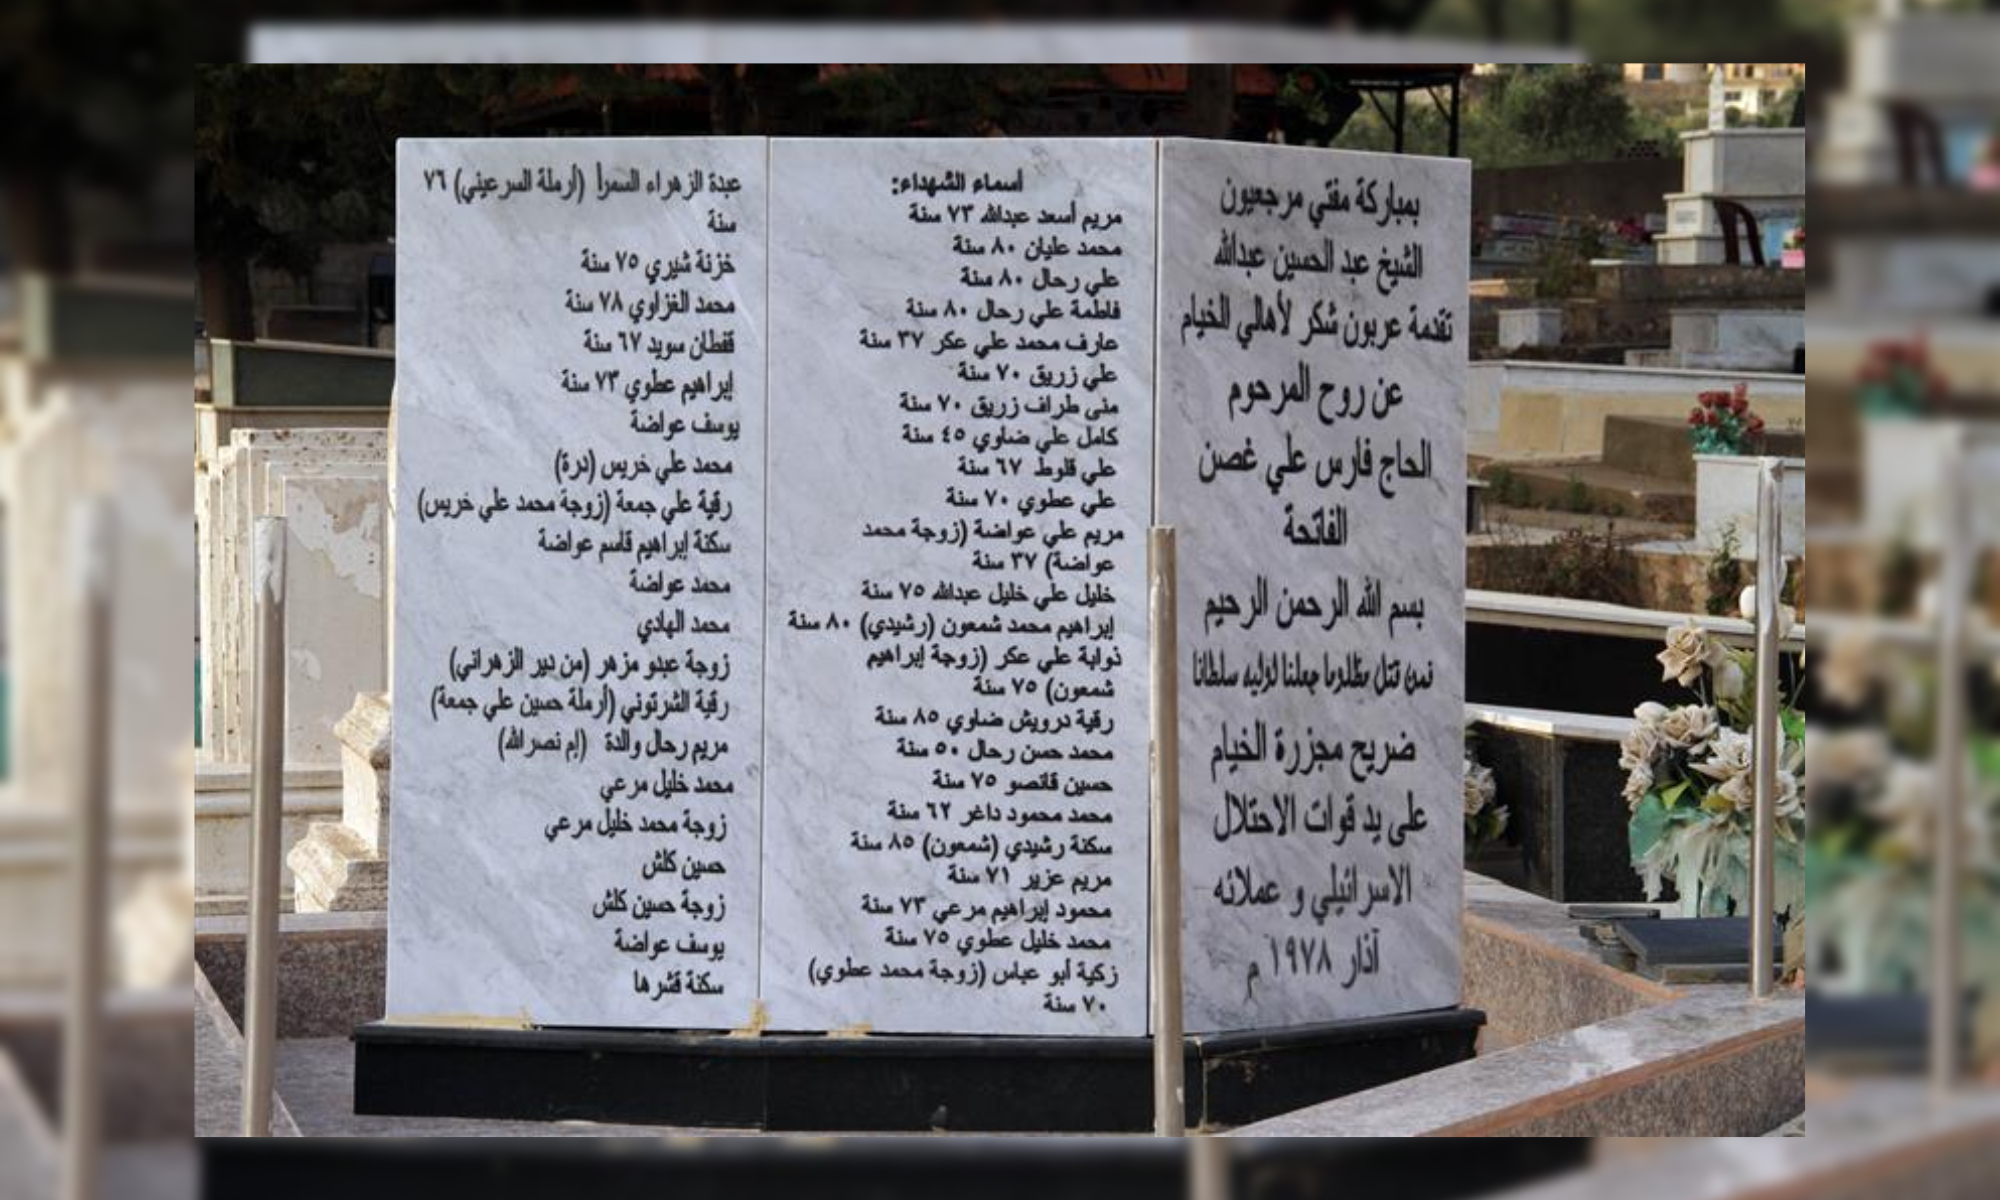 بمباركة مفتي مرجعيون
الشيخ عبد الحسين عبدالله
تقدمة عربون شكر لأهالي الخيام
عن روح المرحوم
الحاج فارس علي غصن
الفاتحة
بسم الله الرحمن الرحيم
فمن قتل مظلوما جعلنا لوليه سلطانا
ضريح مجزرة الخيام
على يد قوات الاحتلال
الاسرائيلي و عملائه
آذار ١٩٧٨ م
أسماء الشهداء:
مريم أسعد عبدالله ٧٣ سنة
محمد عليان ٨٠ سنة
علي رحال ٨٠ سنة
فاطمة علي رحال ٨٠ سنة
عارف محمد علي عكر ٣٧ سنة
علي زريق ٧٠ سنة
منى طراف زريق ٧٠ سنة
كامل علي ضاوي ٤٥ سنة
علي قلوط ٦٧ سنة
علي عطوي ٧٠ سنة
مريم علي عواضة (زوجة محمد
عواضة) ٣٧ سنة
خليل علي خليل عبدالله ٧٥ سنة
إبراهيم محمد شمعون (رشيدي) ٨٠ سنة
ذوابة علي عكر (زوجة إبراهيم
شمعون) ٧٥ سنة
رقية درويش ضاوي ٨٥ سنة
محمد حسن رحال ٥٠ سنة
حسين قانصو ٧٥ سنة
محمد محمود داغر ٦٢ سنة
سكنة رشيدي (شمعون) ٨٥ سنة
مريم عزير ٧١ سنة
محمود إبراهيم مرعي ٧٣ سنة
محمد خليل عطوي ٧٥ سنة
زكية أبو عباس (زوجة محمد عطوي)
٧٠ سنة
عبدة الزهراء السمرأ (أرملة السرعيني) ٧٦
سنة
خزنة شيري ٧٥ سنة
محمد الغزاوي ٧٨ سنة
قفطان سويد ٦٧ سنة
إبراهيم عطوي ٧٣ سنة
يوسف عواضة
محمد علي خريس (درة)
رقية علي جمعة (زوجة محمد علي خريس)
سكنة إبراهيم قاسم عواضة
محمد عواضة
محمد الهادي
زوجة عبدو مزهر (من دير الزهراني)
رقية الشرتوني (أرملة حسين علي جمعة)
مريم رحال والدة (إم نصرالله)
محمد خليل مرعي
زوجة محمد خليل مرعي
حسين كلش
زوجة حسين كلش
يوسف عواضة
سكنة قشرها